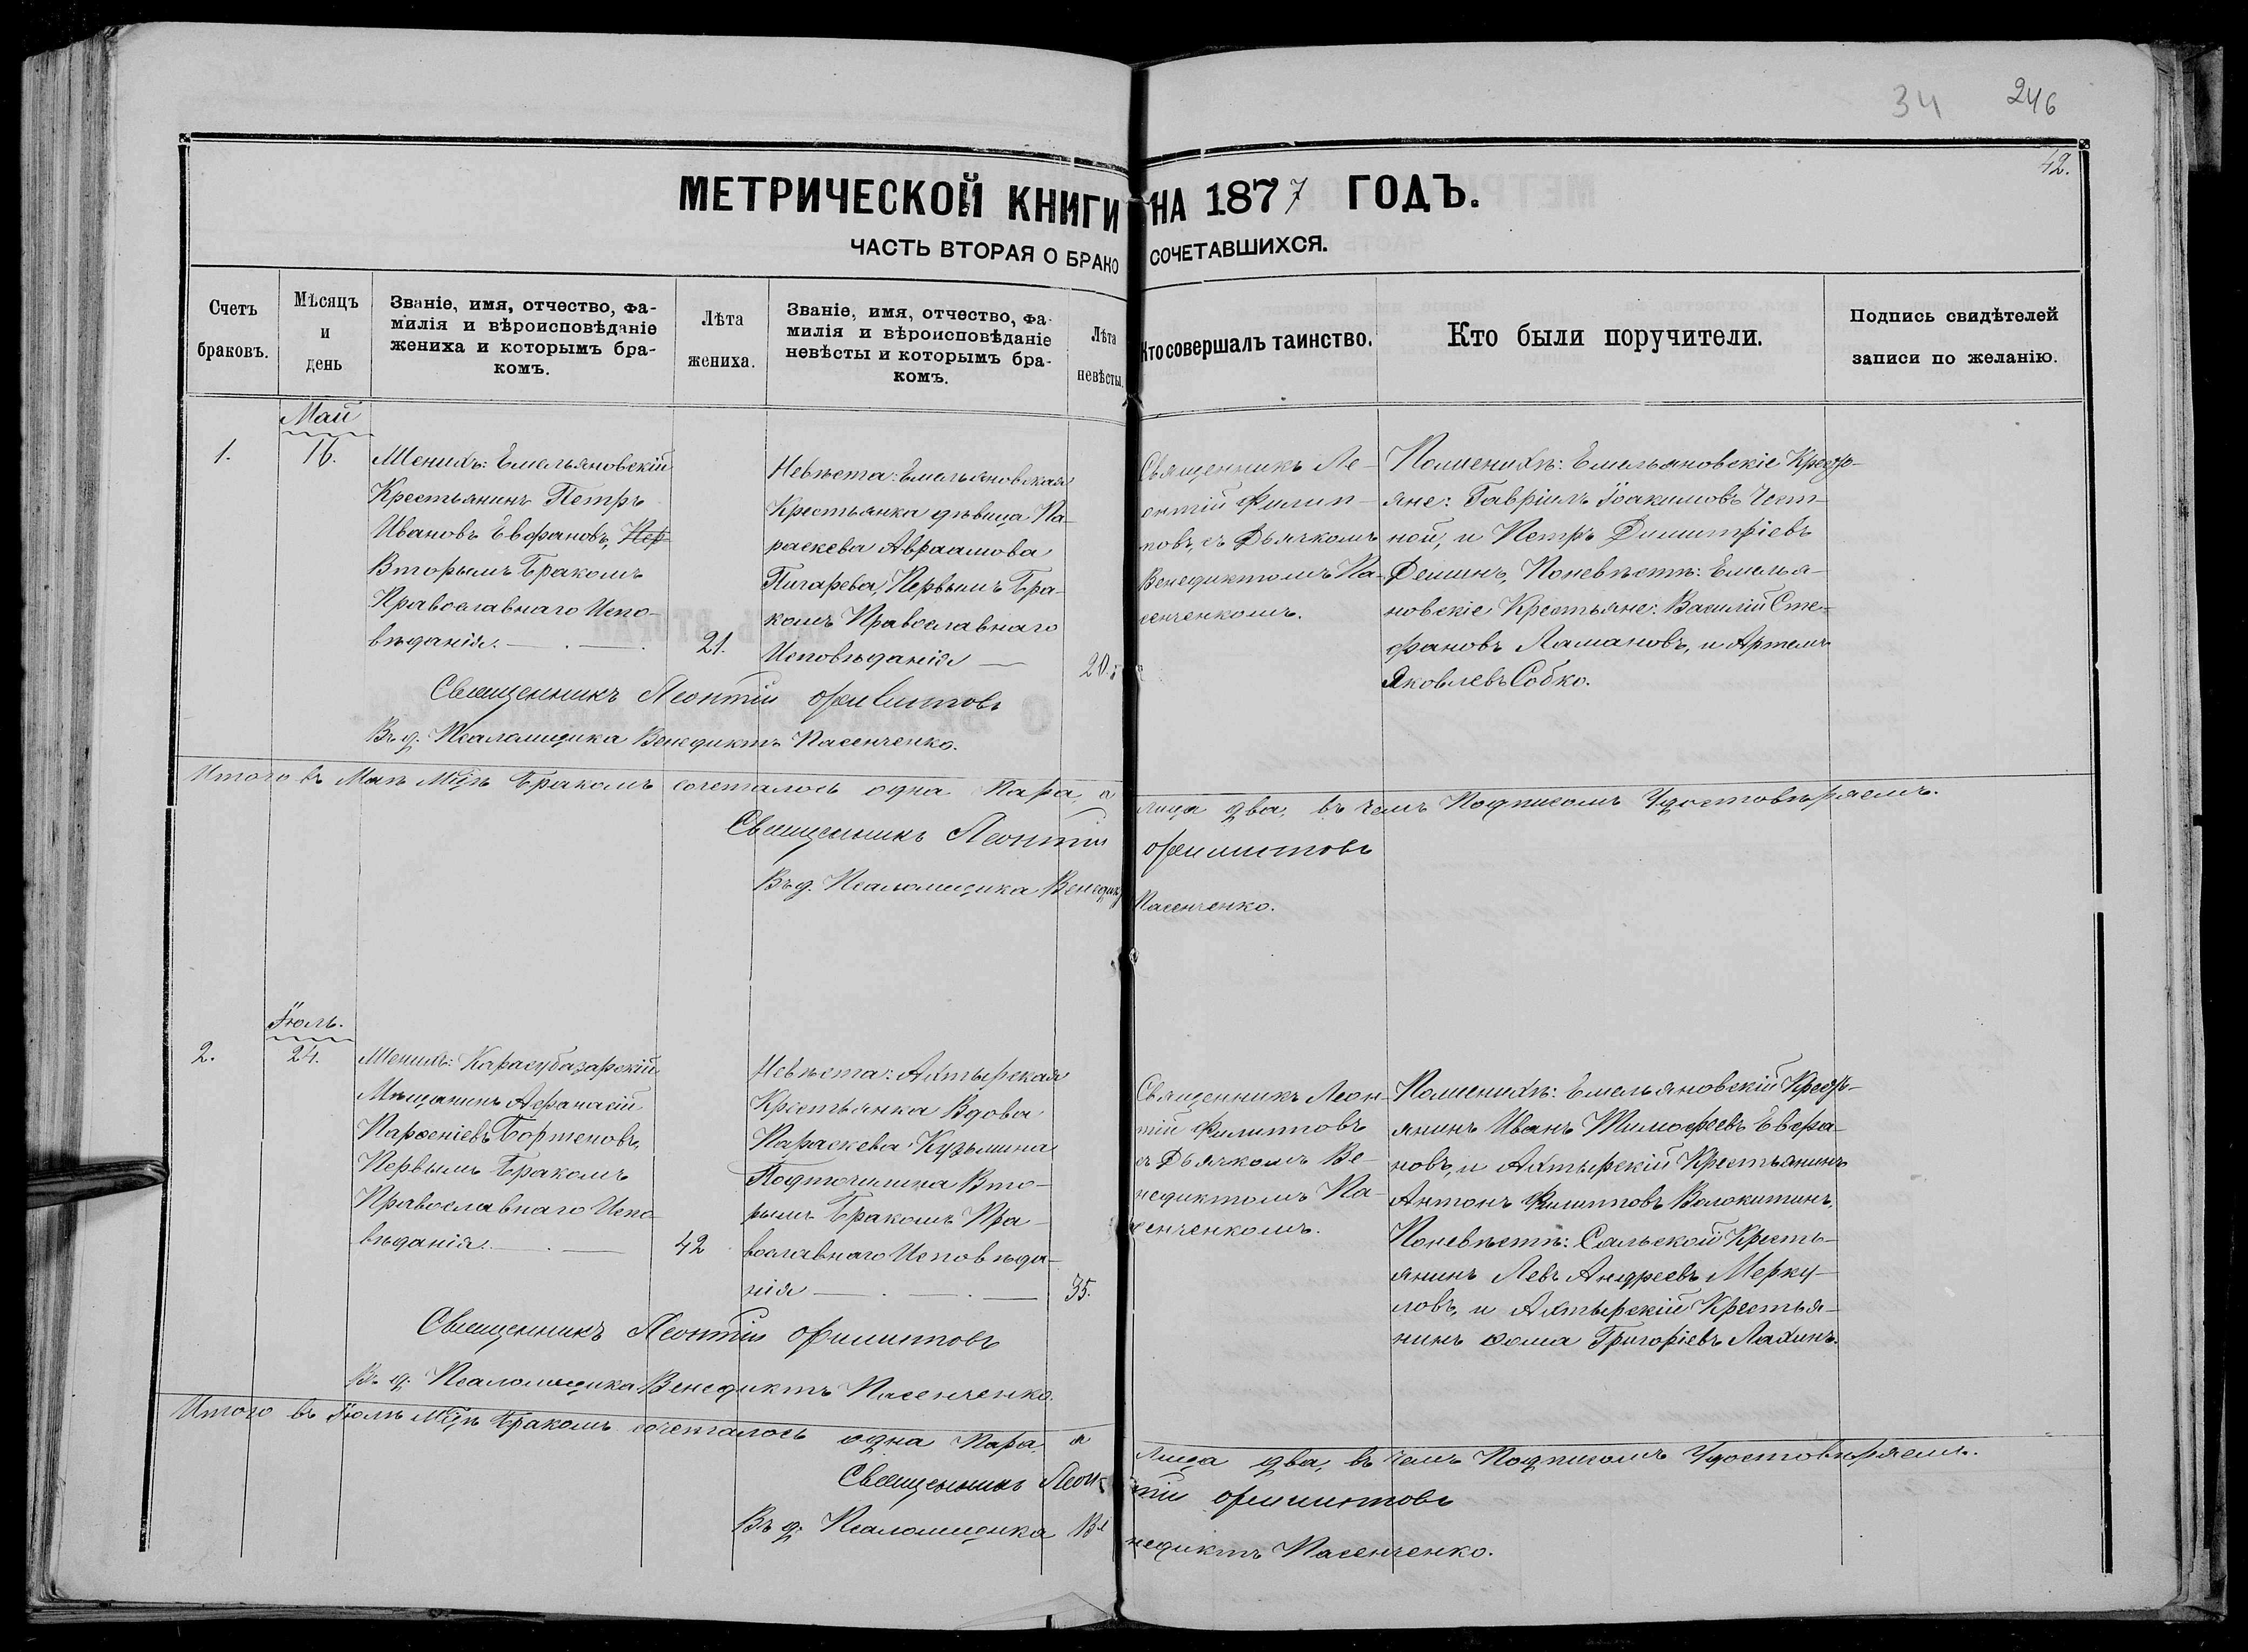 34 246
42.
МЕТРИЧЕСКОЙ КНИГИ НА 1877 ГОДЪ.
ЧАСТЬ ВТОРАЯ О БРАКО СОЧЕТАВШИХСЯ.
Счетъ
браковъ.
Мѣсяцъ
и
день
Званіе, имя, отчество, фа-
милія и вѣроисповѣданіе
жениха и которымъ бра-
комъ.
Лѣта
жениха.
Званіе, имя, отчество, фа-
милія и вѣроисповѣданіе
невѣсты и которымъ бра-
комъ.
Лѣта
невѣсты.
Кто совершалъ таинство.
Кто были поручители.
Подпись свидѣтелей
записи по желанію.
Май
1.
16.
Женихъ: Емельяновскій
Крестьянинъ Петръ
Ивановъ Евфановъ, Пер-
Вторымъ Бракомъ
Православнаго Испо-
вѣданія.
21.
Невѣста: Емельяновская
Крестьянка дѣвица Па-
раскева Авраамова
Пигарева, Первымъ Бра-
комъ Православнаго
Исповѣданія
20.
Священникъ Ле-
онтій Филип-
повъ, съ Дьячкомъ
Венедиктомъ Па-
сенченкомъ.
Поженихѣ: Емельяновскіе Кресть-
яне: Гавріилъ Іоакимовъ Чест-
ной, и Петръ Димитріевъ
Деминъ, Поневѣстѣ: Емелья-
новскіе Крестьяне: Василій Сте-
фановъ Ламановъ, и Артемъ
Яковлевъ Собко.
Священникъ Леонтій Филиповъ
Въ д. Псаломщика Венедиктъ Пасенченко.
Итого въ Маѣ Мцѣ Бракомъ сочеталось одна Пара, а лица два, въ чемъ Подписомъ Удостовѣряемъ.
Священникъ Леонтій Филиповъ
Въ д. Псаломщика Венедиктъ Пасенченко.
Іюль.
2.
24.
Женихъ: Карасубазарскій
Мѣщанинъ Афанасій
Парѳеніевъ Бортеновъ,
Первымъ Бракомъ
Православнаго Испо-
вѣданія.
42
Невѣста: Ахтырская
Крестьянка Вдова
Параскева Кузьмина
Подточилина Вто-
рымъ Бракомъ Пра-
вославнаго Исповѣда-
нія
35.
Священникъ Леон-
тій Филипповъ
съ Дьячкомъ Ве-
недиктомъ Па-
сенченкомъ.
Поженихѣ: Емельяновскій Кресть-
янинъ Иванъ Тимофеевъ Евфа-
новъ, и Ахтырскій Крестьянинъ
Антонъ Филипповъ Волокитинъ,
Поневѣстѣ: Сальской Кресть-
янинъ Левъ Андреевъ Мерку-
ловъ, и Ахтырскій Крестья-
нинъ Ѳома Григорьевъ Лахинъ.
Священникъ Леонтій Филиповъ
Въ д. Псаломщика Венедиктъ Пасенченко.
Итого въ Іюлѣ Мцѣ Бракомъ сочеталось одна Пара, а Лица два, въ чемъ Подписомъ Удостовѣряемъ.
Священникъ Леонтій Филиповъ
Въ д. Псаломщика Венедиктъ Пасенченко.